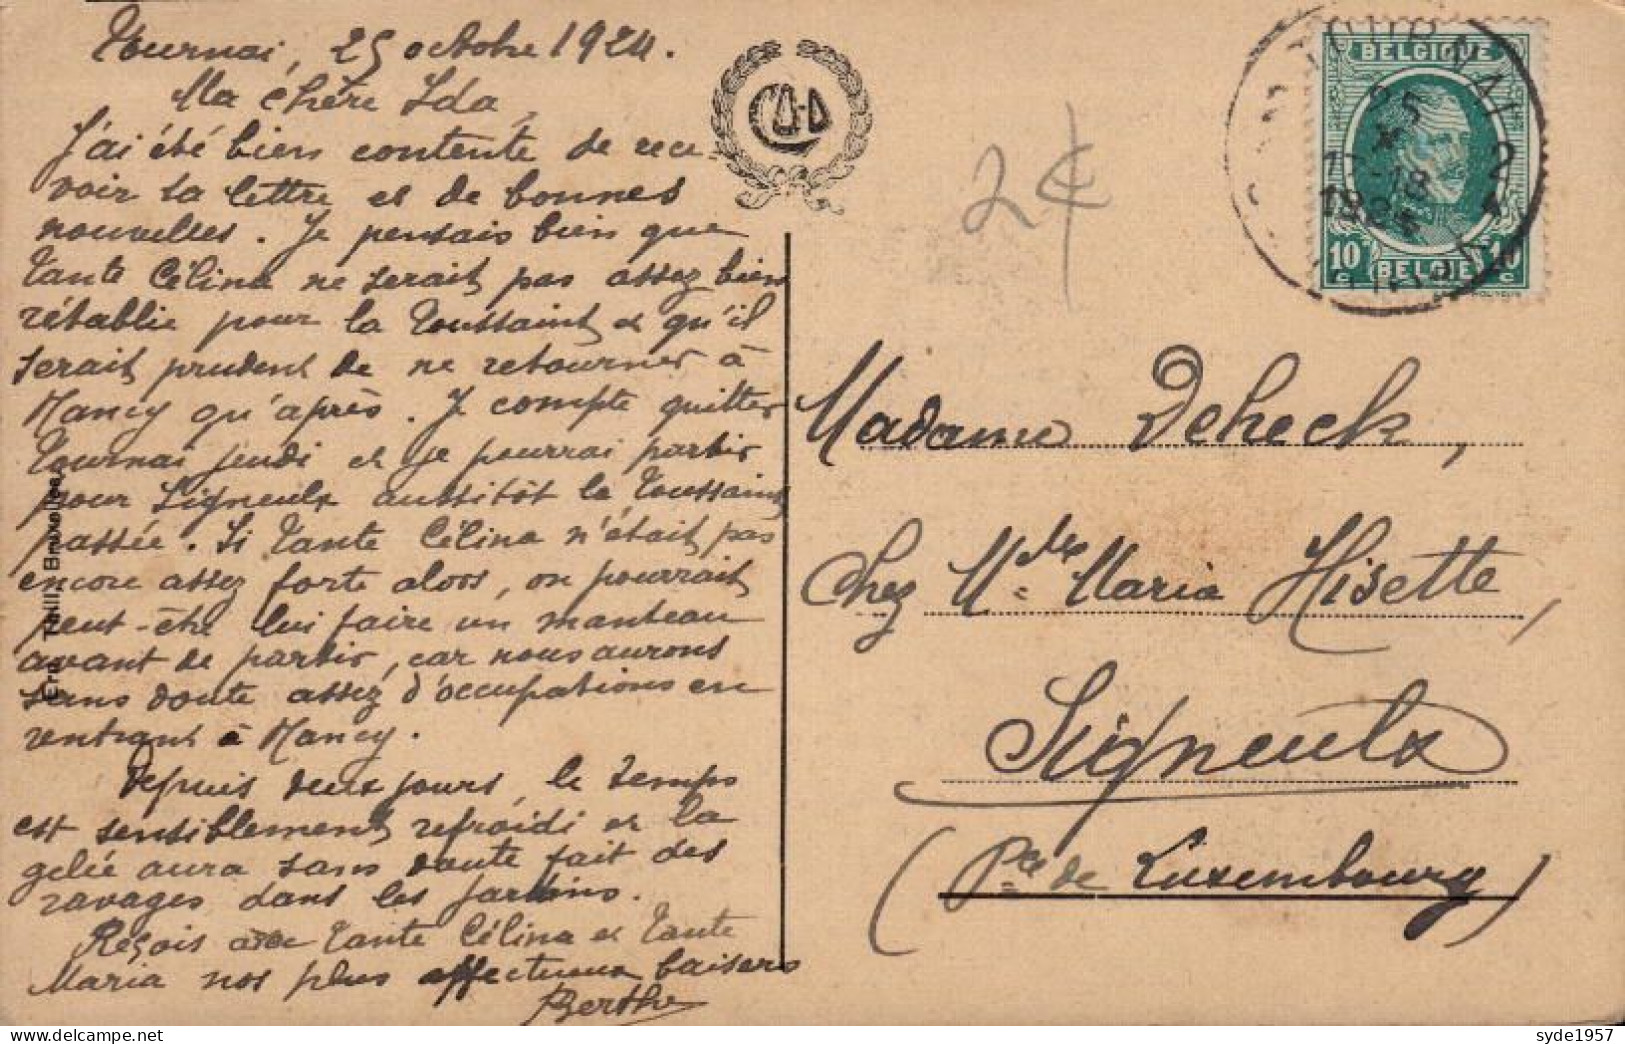 Tournai, 25 octobre 1924.
Ma chère Ida,
J'ai été bien contente de rece-
voir ta lettre et de bonnes
nouvelles. Je pensais bien que
Tante Célina ne serait pas assez bien
rétablie pour la Toussaint & qu'il
serait prudent de ne retourner à
Nancy qu'après. Je compte quitter
Tournai jeudi et je pourrai partir
pour Signeulx aussitôt la Toussaint
passée. Si Tante Célina n'était pas
encore assez forte alors, on pourrait
peut-être lui faire un manteau
avant de partir, car nous aurons
sans doute assez d'occupations en
rentrant à Nancy.
Depuis deux jours, le temps
est sensiblement refroidi et la
gelée aura sans doute fait des
ravages dans les jardins.
Reçois avec Tante Célina et Tante
Maria nos plus affectueux baisers
Berthe
Ern. Thill, Bruxelles
2€
BELGIQUE
10 c 10 c
BELGIË
TOURNAI 2
25 X
-18
1924
DOORNIK
Madame Deheck,
Chez Mlle Maria Hisette,
Signeulx
(Pce de Luxembourg)
syde1957